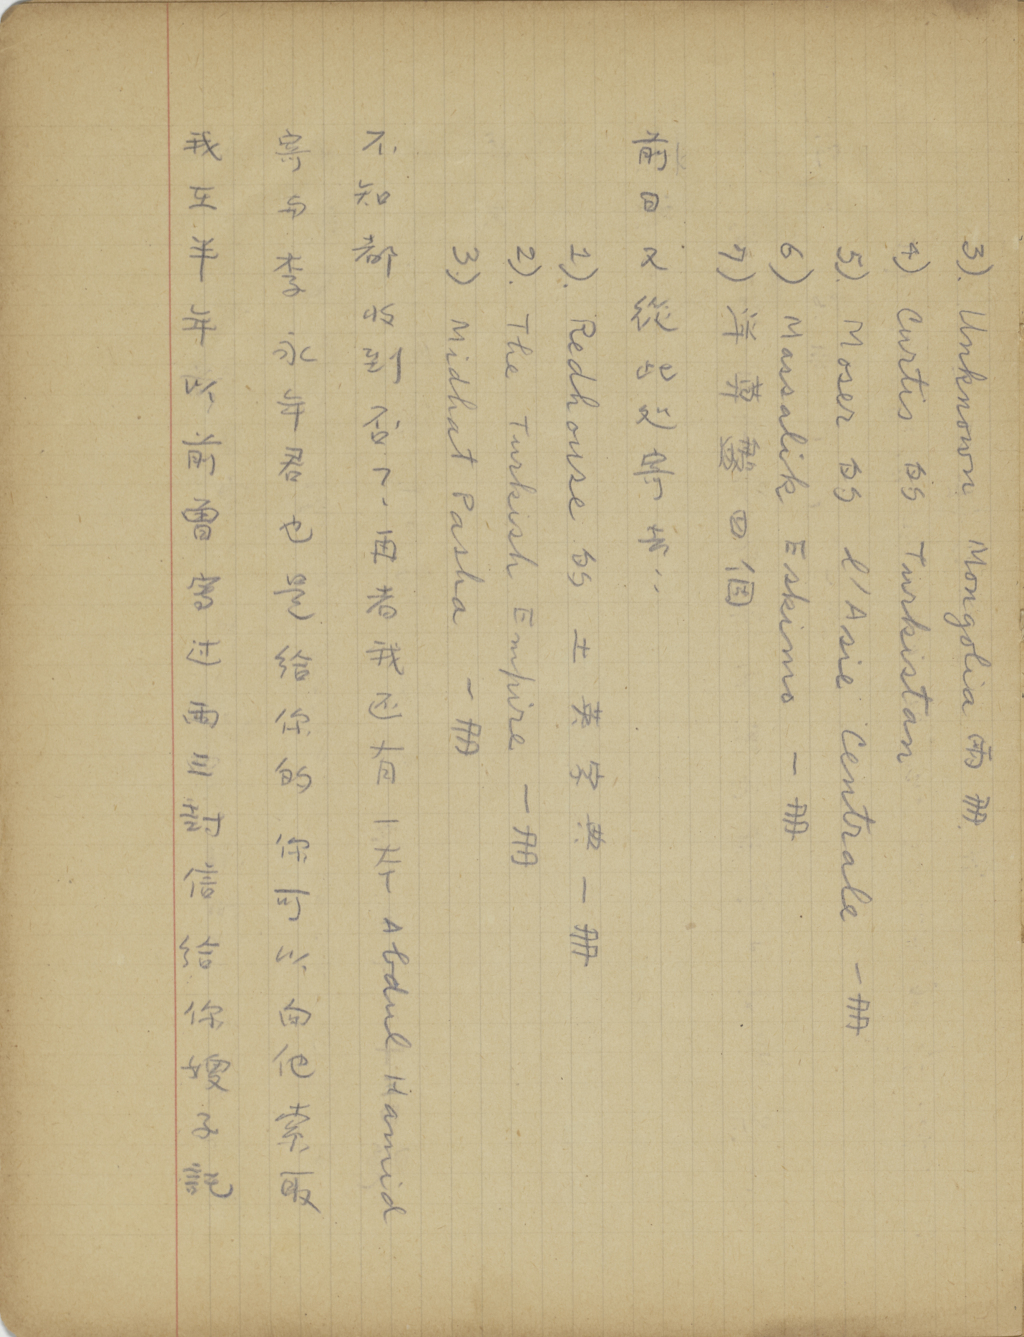 3). Unknown Mongolia 两册.
4) Curtis 的 Turkistan
5). Moser 的 l'Asie Centrale 一册
6) Massalik Eskimo 一册
7) 洋草 四個
前日又從 寄
1). Redhouse 的 土英字典 一册
2). The Turkish Empire 一册
3) Midhat Pasha 一册
不知都收到否了、再者我还有 Abdul Hamid
寄与李永年君也是给你的 你可以向他索取
我在半年以前曾寄过两三封信给你嫂子說